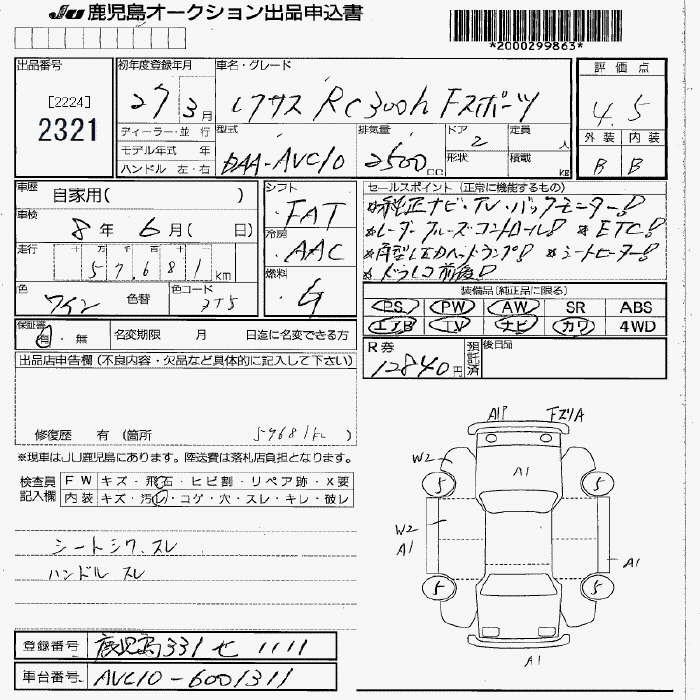 JU 鹿児島オークション出品申込書
*2000299863*
出品番号
[2224]
2321
初年度登録年月
27 3月
車名・グレード
レクサス RC300h Fスポーツ
評価点
4.5
外装 内装
B B
ディーラー・並 行
モデル年式 年
ハンドル 左・右
型式
DAA-AVC10
排気量
2500cc
ドア
2
形状
定員 人
積載 KG
車歴 自家用( )
車検 8年 6月( 日)
走行 十 万 千 百 十
57,681 km
色 ワイン 色替
色コード 3T5
シフト
FAT
冷房
AAC
燃料
G
セールスポイント (正常に機能するもの)
*純正ナビ・TV・バックモニター!!
*レーダークルーズコントロール!! *ETC!!
*角型LEDヘッドランプ!! *シートヒーター!!
*ドラレコ前後!!
装備品(純正品に限る)
PS PW AW SR ABS
エアB TV ナビ カワ 4WD
保証書
有・無
名変期限 月 日迄に名変できる方
R券
12840円
預託済
後日品
出品店申告欄(不良内容・欠品など具体的に記入して下さい)
修復歴 有 (箇所 57681km )
※現車はJU鹿児島にあります。陸送費は落札店負担となります。
検査員記入欄
FW キズ・飛石・ヒビ割・リペア跡・X要
内装 キズ・汚レ・コゲ・穴・スレ・キレ・破レ
シートシワ、スレ
ハンドル スレ
A1P FスリA
W2
A1
5 5
W2
A1
A1
5 5
A1
登録番号 鹿児島 331 せ 1111
車台番号 AVC10-6001311